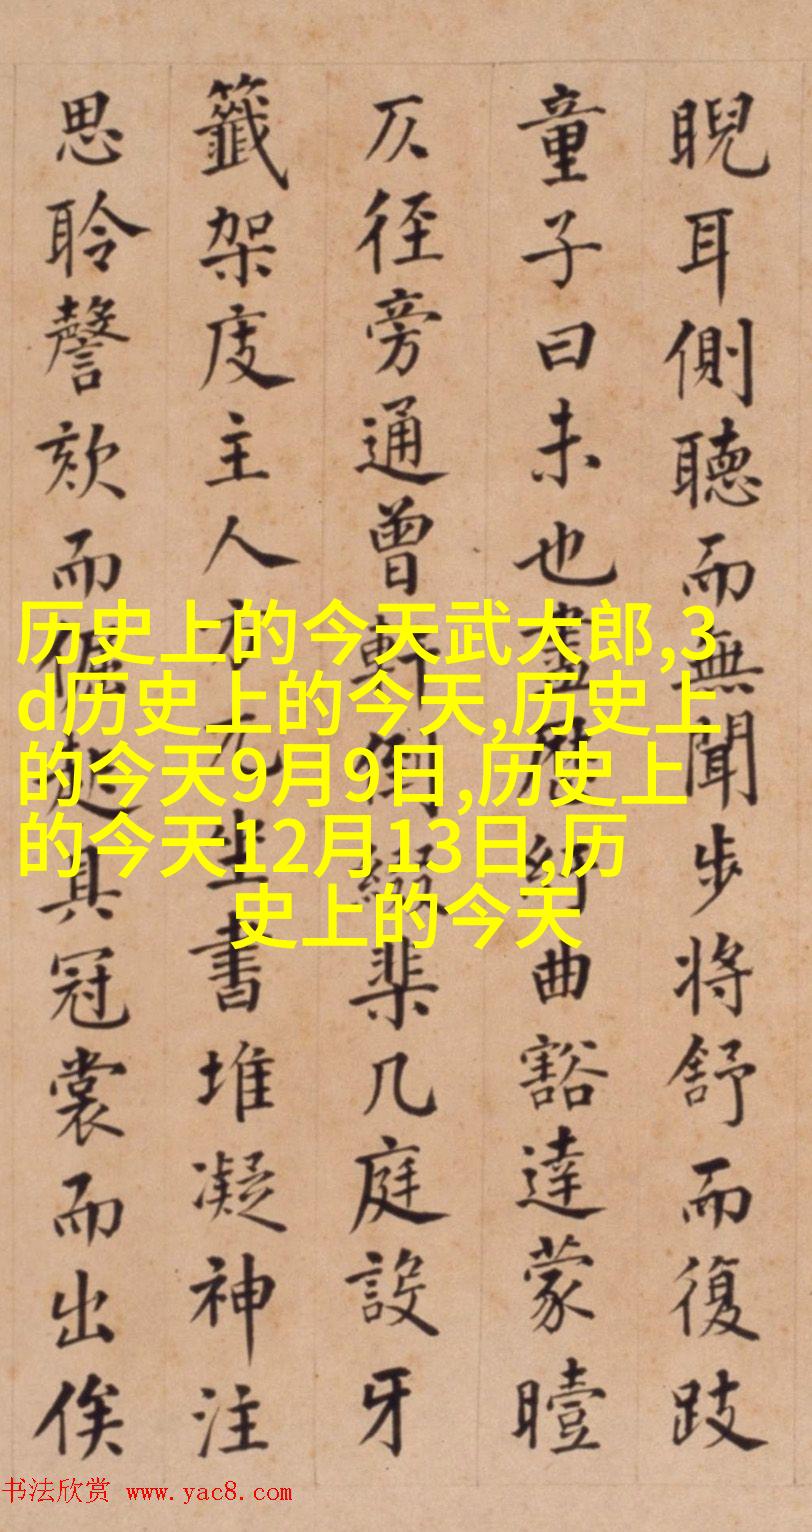 睨耳側聽而無聞步將舒而復跂
童子曰未也畫紆曲豁達蒙曀
仄徑旁通曾軒倒綴棐几庭設牙
籤架庋主人方兀坐書堆凝神注
思聆謦欬而倔起具冠裳而出俟
历史上的今天武大郎,3
d历史上的今天,历史上
的今天9月9日,历史上
的今天12月13日,历
史上的今天
书法欣赏 www.yac8.com